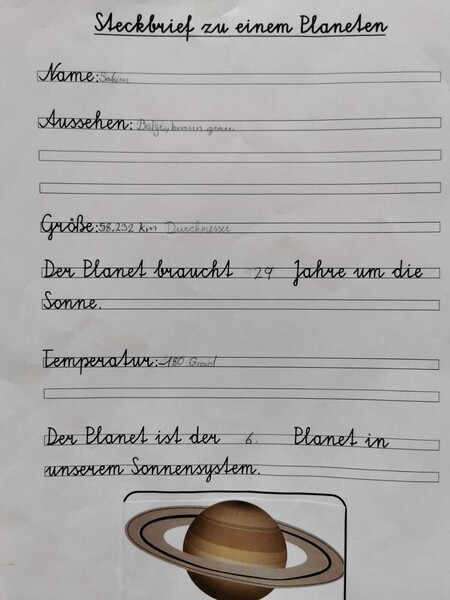 Steckbrief zu einem Planeten
Name: Saturn
Aussehen: Beige, braun grau
Größe: 58,232 km Durchmesser
Der Planet braucht 29 Jahre um die
Sonne.
Temperatur: -180 Grad
Der Planet ist der 6. Planet in
unserem Sonnensystem.